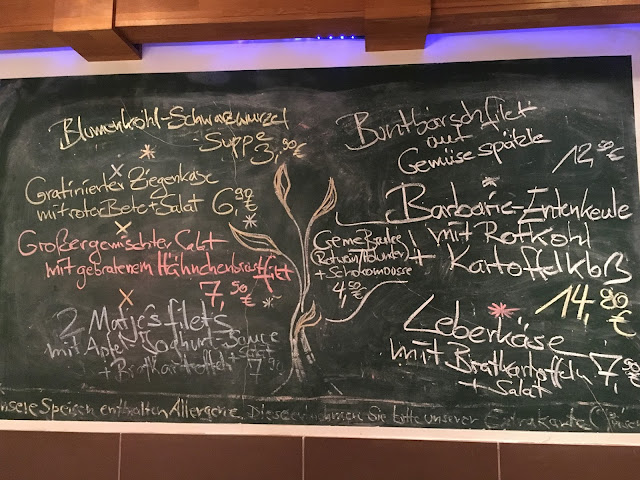 Blumenkohl-Schwarzwurzel
Suppe 3,90 €
Gratinierter Ziegenkäse
mit roter Bete + Salat 6,90 €
Großer gemischter Salat
mit gebratenem Hähnchenbrustfilet
7,50 €
2 Matjesfilets
mit Apfel-Joghurt-Sauce
+ Bratkartoffeln + Salat 7,90 €
Creme Brulee
Rotwein Holunder
+ Schokomousse
4,50 €
Buntbarschfilet
auf
Gemüse spätzle
12,50 €
Barbarie-Entenkeule
mit Rotkohl
+ Kartoffelkloß
14,80 €
Leberkäse
mit Bratkartoffeln 7,50 €
+ Salat
unsere Speisen enthalten Allergene, Diese entnehmen Sie bitte unserer Extra Karte